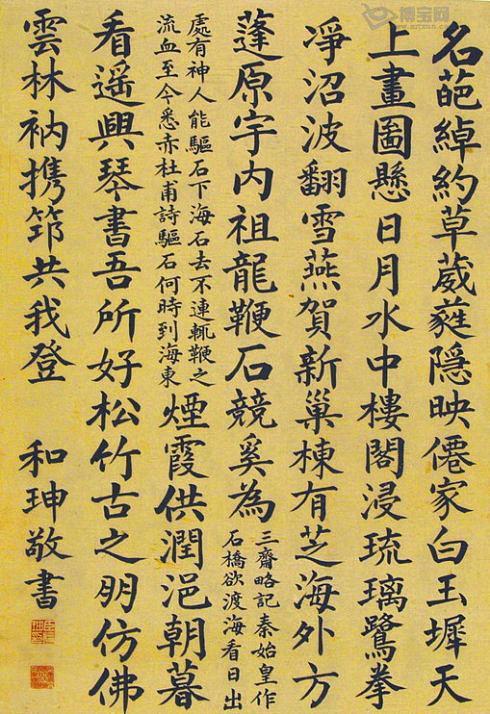 名葩綽約草葳蕤隱映僊家白玉墀天
上畫圖懸日月水中樓閣浸琉璃鷺拳
凈沼波翻雪燕賀新巢棟有芝海外方
蓬原宇内祖龍鞭石競奚為
三齋略記秦始皇作
石橋欲渡海看日出
處有神人能驅石下海石去不連輒鞭之
流血至今悉赤杜甫詩驅石何時到海東
煙霞供潤浥朝暮
看遥興琴書吾所好松竹古之朋仿佛
雲林衲携筇共我登
和珅敬書
博宝网